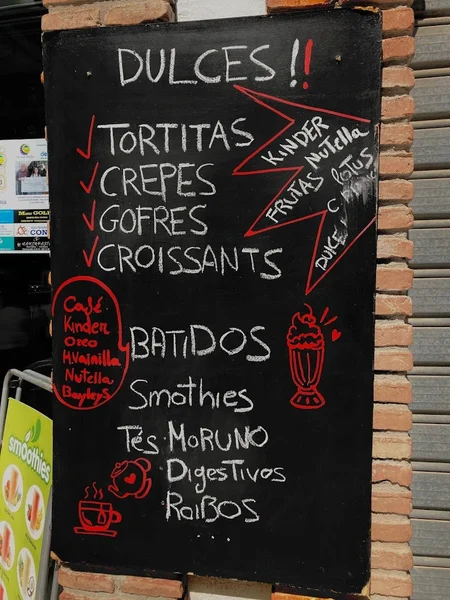 DULCES !!
TORTITAS
CREPES
GOFRES
CROISSANTS
KINDER
Nutella
FRUTAS
LOTUS
DULCE
C
Café
Kinder
Oreo
H.Vainilla
Nutella
Baylers
BATIDOS
Smothies
Tés MORUNO
DIgesTivos
RoiBOS
...
smoothies